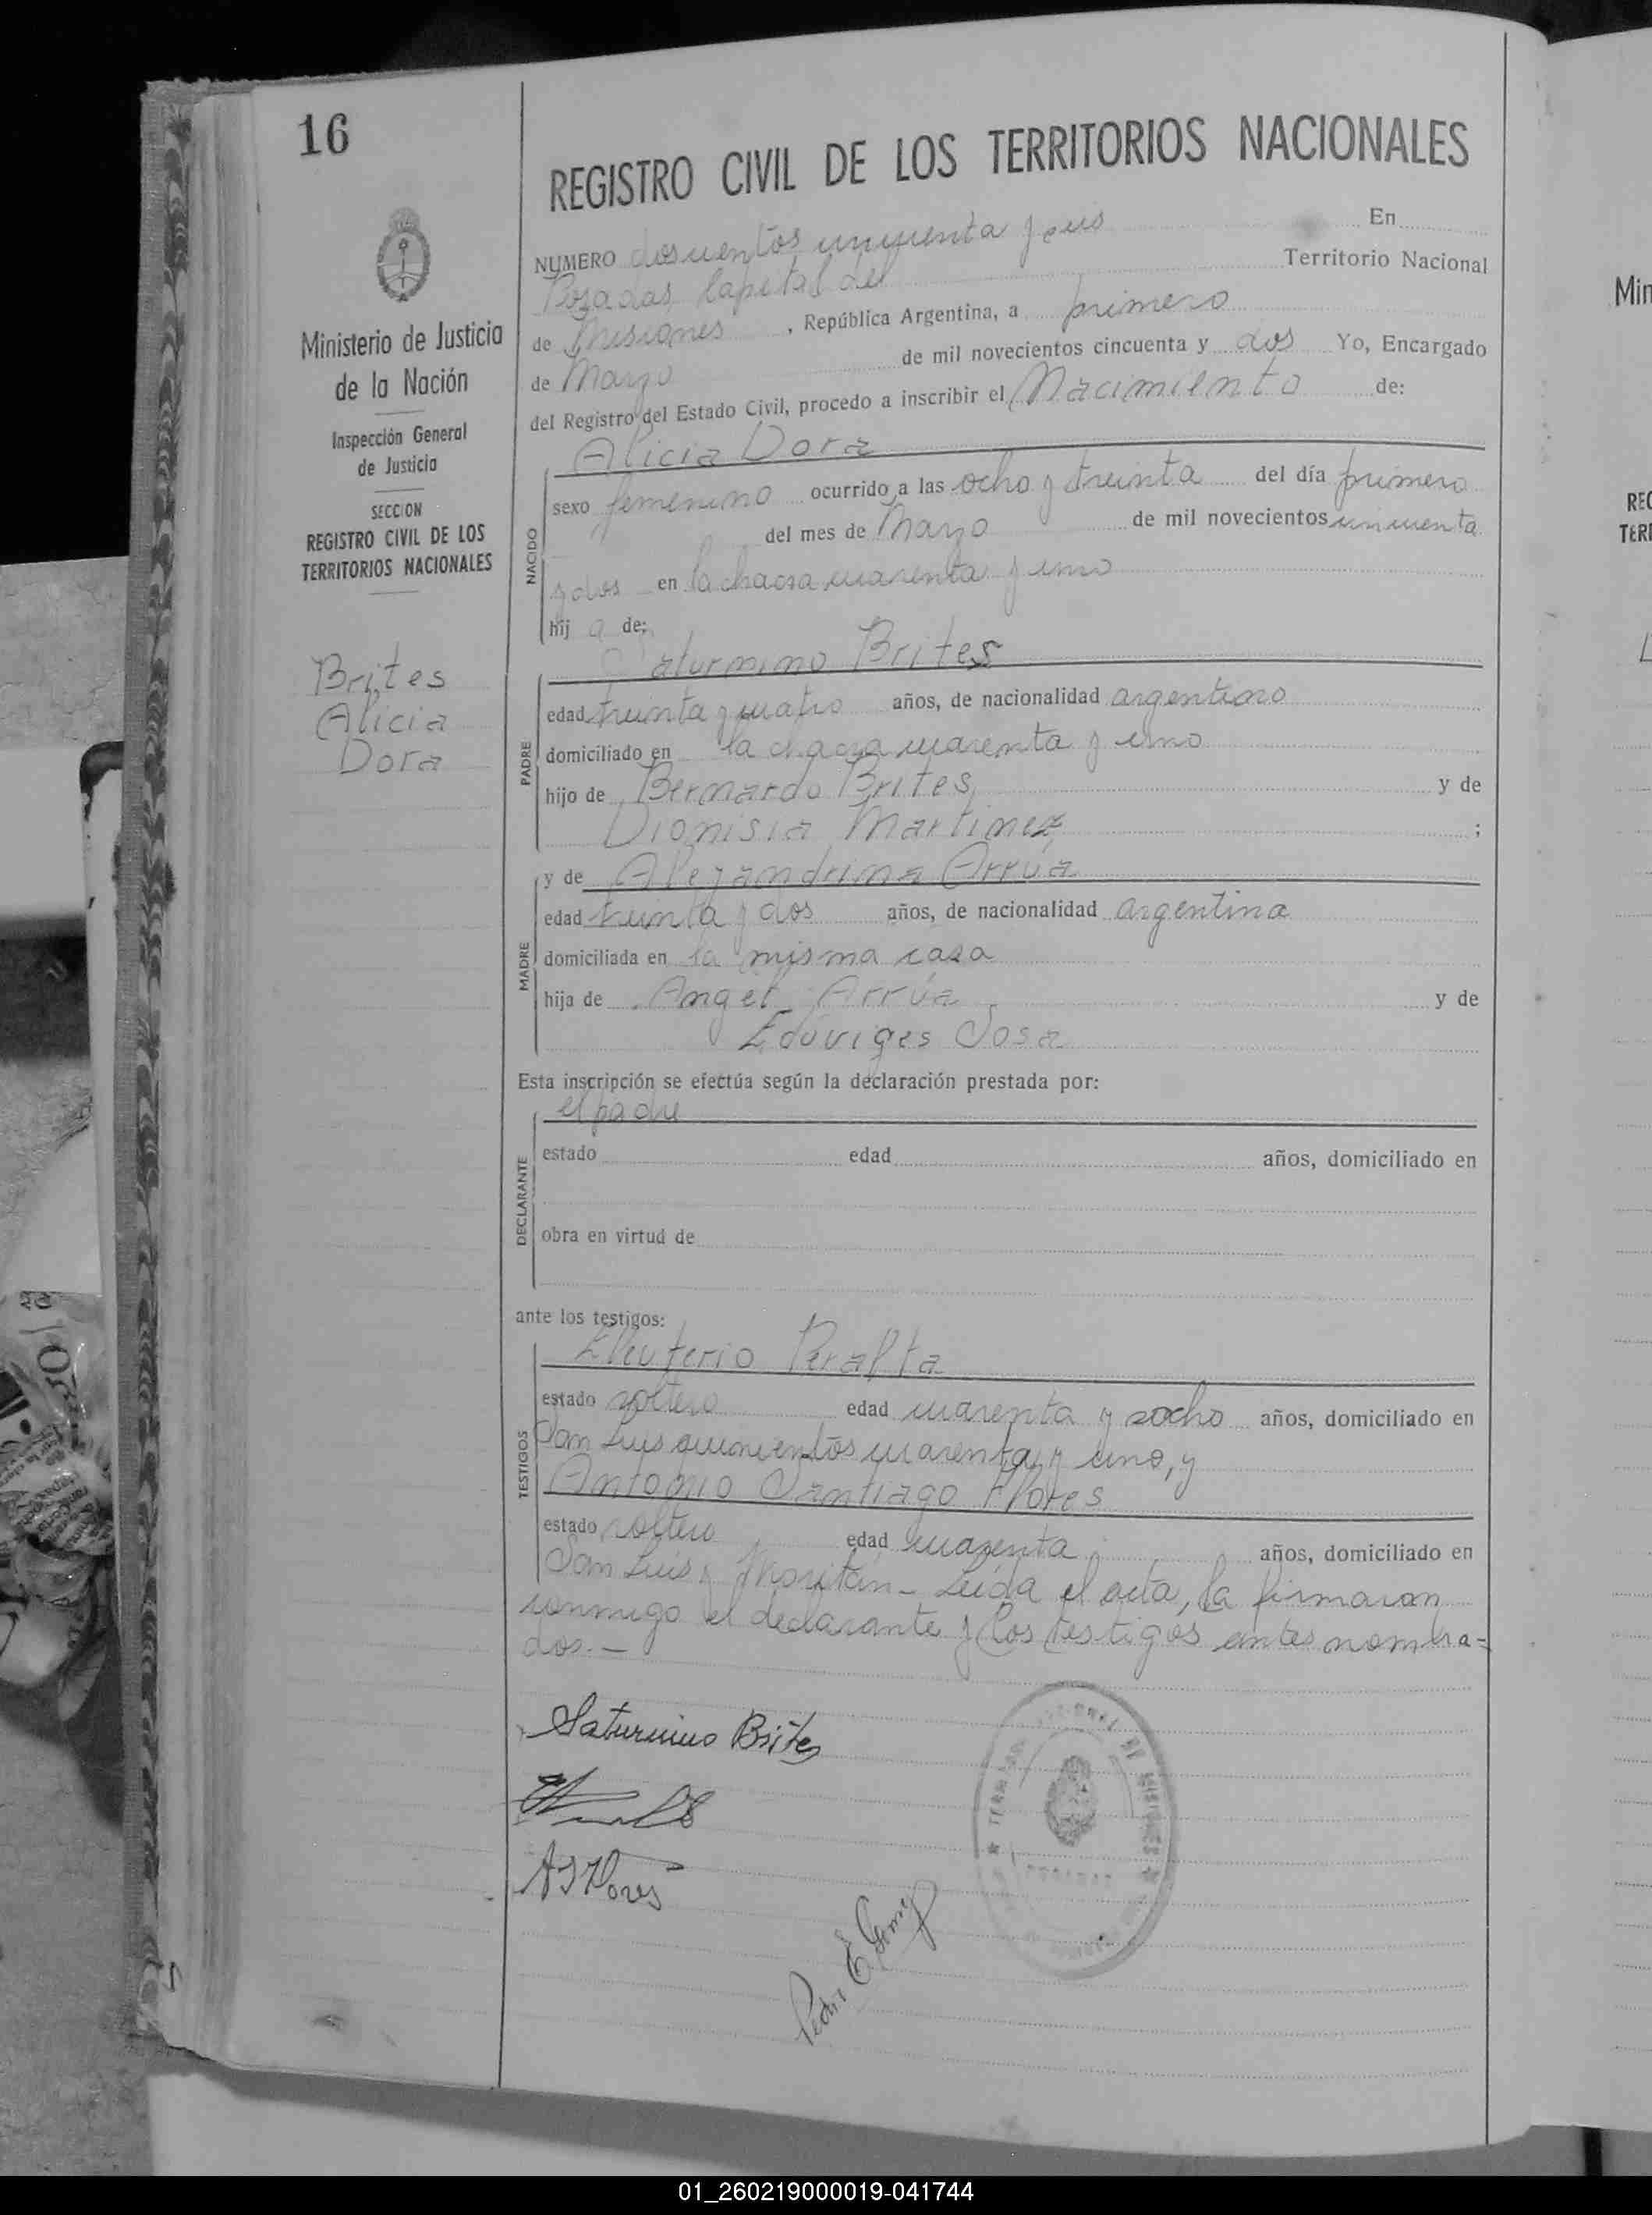 16
REGISTRO CIVIL DE LOS TERRITORIOS NACIONALES
NUMERO doscientos cincuenta y seis En
Posadas, Capital del Territorio Nacional
de Misiones, República Argentina, a primero
de Marzo de mil novecientos cincuenta y dos Yo, Encargado
del Registro del Estado Civil, procedo a inscribir el Nacimiento de:
Alicia Dora
NACIDO
sexo femenino ocurrido a las ocho y treinta del día primero
del mes de Marzo de mil novecientos cincuenta
y dos en la chacra cuarenta y uno
hij a de:
Ministerio de Justicia
de la Nación
Inspección General
de Justicia
SECCION
REGISTRO CIVIL DE LOS
TERRITORIOS NACIONALES
Brites
Alicia
Dora
Saturnino Brites
PADRE
edad treinta y cuatro años, de nacionalidad argentino
domiciliado en la chacra cuarenta y uno
hijo de Bernardo Brites y de
Dionisia Martinez ;
y de Alejandrina Arrúa
MADRE
edad treinta y dos años, de nacionalidad argentina
domiciliada en la misma casa
hija de Angel Arrúa y de
Eduviges Sosa
Esta inscripción se efectúa según la declaración prestada por:
el padre
DECLARANTE
estado edad años, domiciliado en
obra en virtud de
ante los testigos:
Eleuterio Peralta
TESTIGOS
estado soltero edad cuarenta y ocho años, domiciliado en
San Luis quinientos cuarenta y uno, y
Antonio Santiago Flores
estado soltero edad cuarenta años, domiciliado en
San Luis y Moritán - Leída el acta, la firmaron
conmigo el declarante y los testigos antes nombra=
dos.-
Saturnino Brites
A S Flores
Pedro E Gomez
DE MISIONES
Min
REG
TERR
01_260219000019-041744